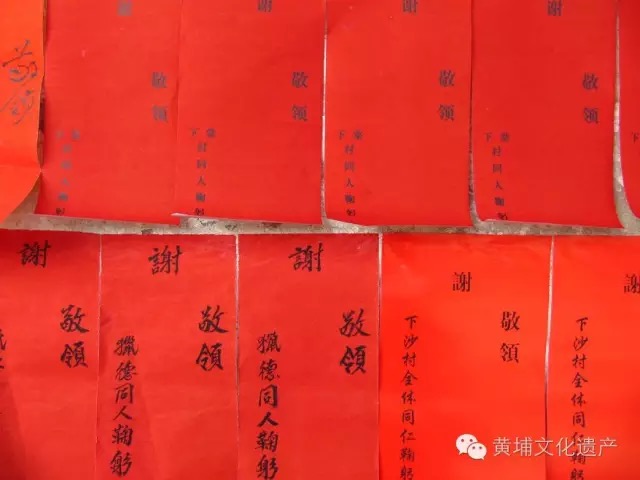 敬領
敬領
謝
棠下村同人鞠躬
敬領
謝
棠下村同人鞠躬
敬領
謝
棠下村同人鞠躬
敬領
謝
棠下村同人鞠躬
敬領
謝
敬領
謝
獵德同人鞠躬
敬領
謝
獵德同人鞠躬
敬領
謝
下沙村全体同仁鞠躬
謝
下沙村全体同仁鞠躬
黄埔文化遗产